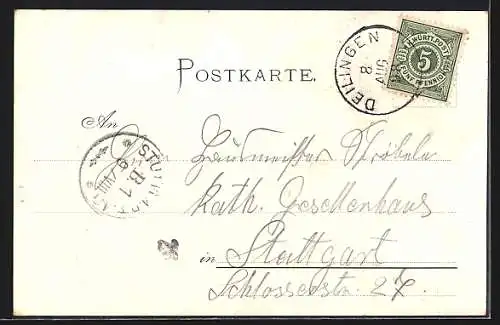 DEILINGEN
8
AUG
K. WÜRTT. POST
5
FÜNF PFENNIG
POSTKARTE.
An
STUTTGART
B. 1
8/VIII
Kath. Gesellenhaus
in Stuttgart
Schlosserstr. 27.